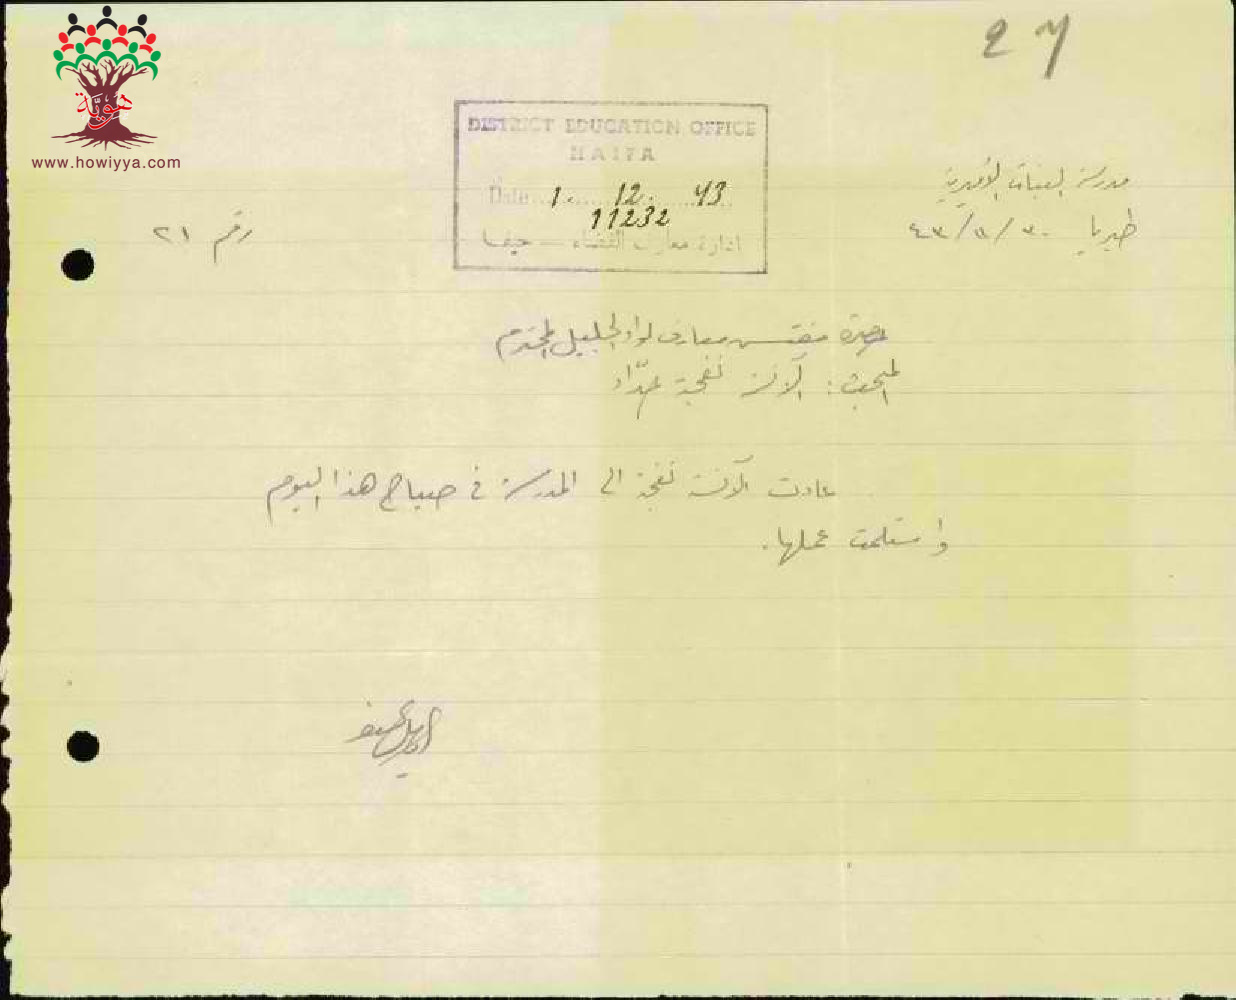 27
هويّة
www.howiyya.com
DISTRICT EDUCATION OFFICE
HAIFA
Date 1. 12. 43
11232
ادارة معارف القضاء — حيفا
مدرسة البنات الاميرية
طبريا ٣٠/١١/٤٣
رقم ٢١
حضرة مفتش معارف لواء الجليل المحترم
المبحث: الآنسة نفجة حدّاد
عادت الآنسة نفجة الى المدرسة في صباح هذا اليوم
واستلمت عملها.